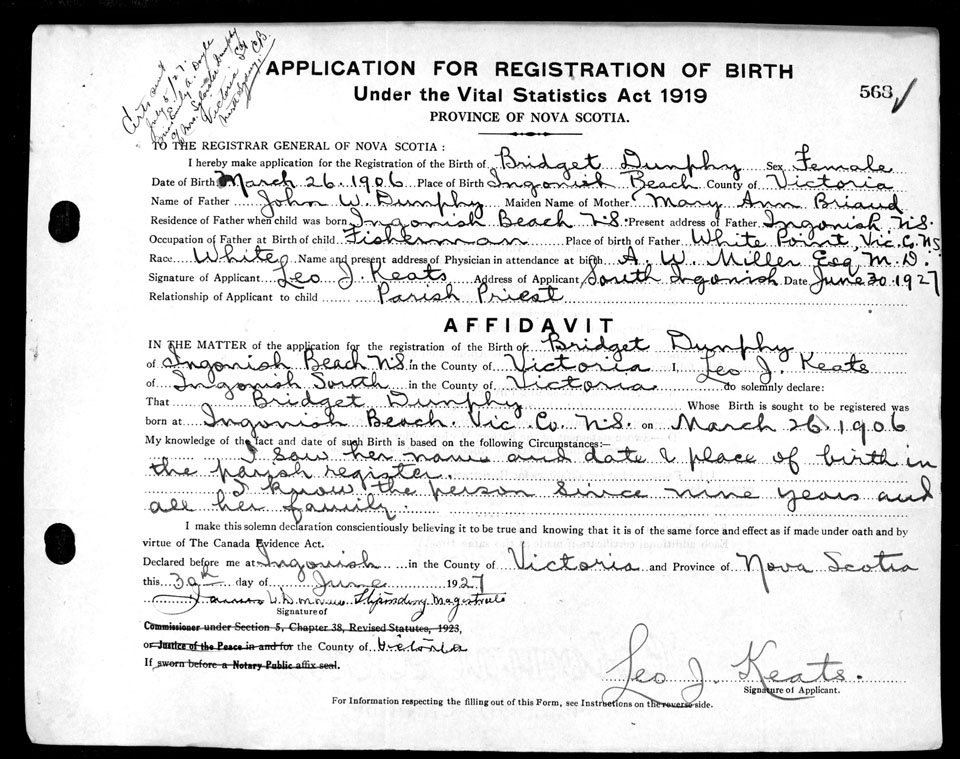 Certs sent
July 5/27.
Miss Emily A. Doyle
Mrs. Dumphy
Victoria St
North Sydney. C.B.
APPLICATION FOR REGISTRATION OF BIRTH
Under the Vital Statistics Act 1919
568
PROVINCE OF NOVA SCOTIA.
TO THE REGISTRAR GENERAL OF NOVA SCOTIA:
I hereby make application for the Registration of the Birth of Bridget Dumphy Sex Female
Date of Birth March 26. 1906 Place of Birth Ingonish Beach County of Victoria
Name of Father John W. Dumphy Maiden Name of Mother Mary Ann Briaud
Residence of Father when child was born Ingonish Beach N.S. Present address of Father Ingonish. N.S.
Occupation of Father at Birth of child Fisherman Place of birth of Father White Point, Vic. Co. N.S
Race White Name and present address of Physician in attendance at birth A. W. Miller Esq M.D.
Signature of Applicant Leo J. Keats Address of Applicant South Ingonish Date June 30. 1927
Relationship of Applicant to child Parish Priest
AFFIDAVIT
IN THE MATTER of the application for the registration of the Birth of Bridget Dumphy
of Ingonish Beach N.S. in the County of Victoria I, Leo J. Keats
of Ingonish South in the County of Victoria do solemnly declare:
That Bridget Dumphy Whose Birth is sought to be registered was
born at Ingonish Beach. Vic. Co. N.S. on March 26. 1906
My knowledge of the fact and date of such Birth is based on the following Circumstances:—
I saw her name and date & place of birth in
the parish register.
I know the person since nine years and
all her family.
I make this solemn declaration conscientiously believing it to be true and knowing that it is of the same force and effect as if made under oath and by
virtue of The Canada Evidence Act.
Declared before me at Ingonish in the County of Victoria and Province of Nova Scotia
this 30th day of June 1927
Stipendiary Magistrate
Signature of
Commissioner under Section 5, Chapter 38, Revised Statutes, 1923,
or Justice of the Peace in and for the County of Victoria
If sworn before a Notary Public affix seal.
Leo J. Keats.
Signature of Applicant.
For Information respecting the filling out of this Form, see Instructions on the reverse side.